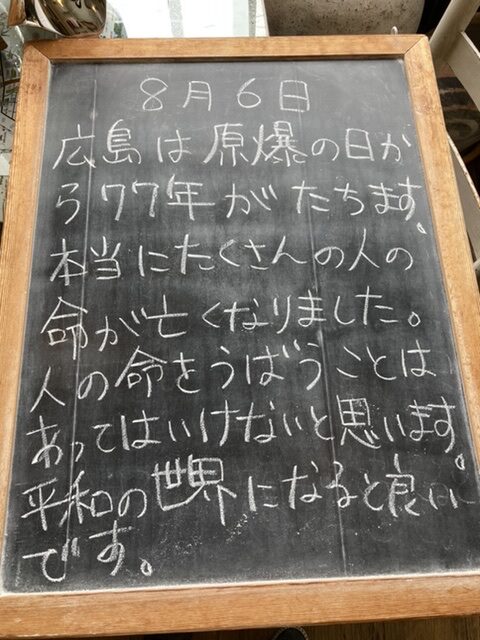 8月6日
広島は原爆の日か
ら77年がたちます。
本当にたくさんの人の
命が亡くなりました。
人の命をうばうことは
あってはいけないと思います。
平和の世界になると良い
です。